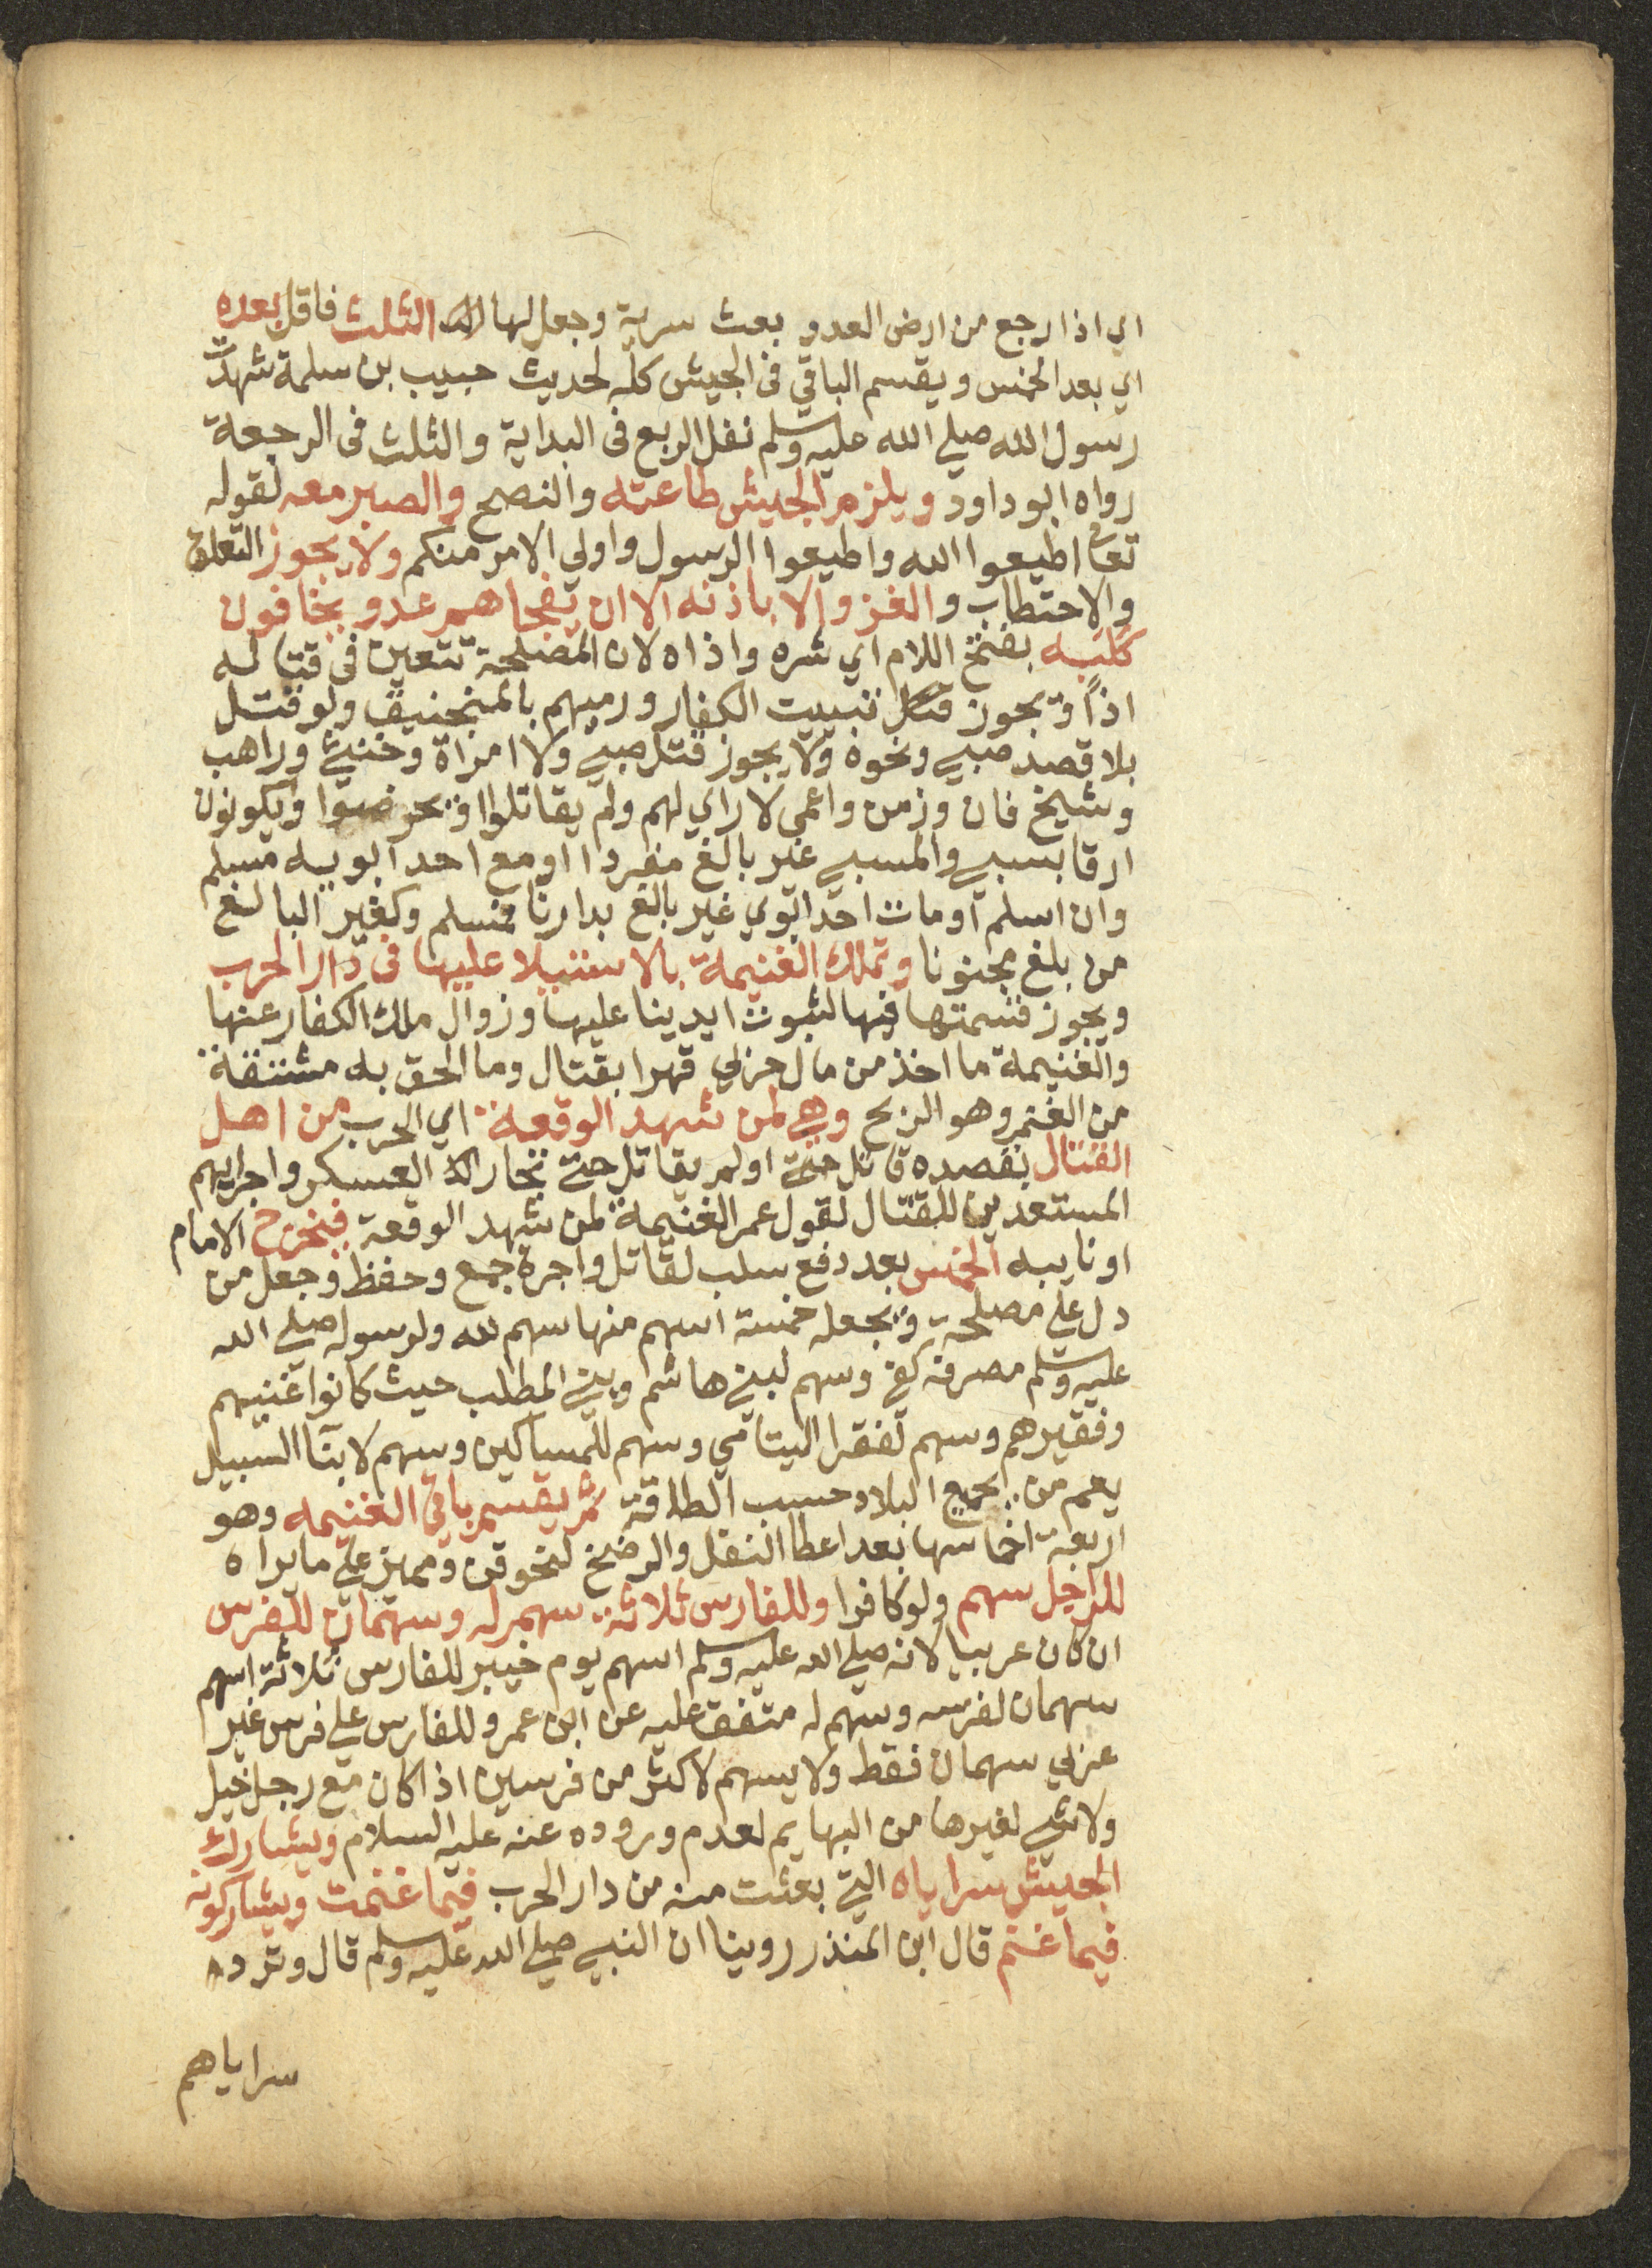 اي اذا رجع من ارض العدو بعث سرية وجعل لها الثلث فاقل بعده
اي بعد الخمس ويقسم الباقي فى الجيش كله لحديث حبيب بن سلمة شهدت
رسول الله صلي الله عليه وسلم نفل الربع فى البداية والثلث فى الرجعة
رواه ابو داود ويلزم الجيش طاعته والنصح والصبر معه لقوله
تعا اطيعوا الله واطيعوا الرسول واولي الامر منكم ولا يجوز التعلف
والاحتطاب والغزو الا باذنه الا ان يفجاهم عدو يخافون
كلبه بفتح اللام اي شره واذاه لان المصلحة تتعين فى قتاله
اذًا ويجوز تبييت الكفار ورميهم بالمنجنيق ولو قتل
بلا قصد صبي ونحوه ولا يجوز قتل صبي ولا امراة وخنثي وراهب
وشيخ فان وزمن واعمي لا راي لهم ولم يقاتلوا او يحرضوا ويكونون
ارقا بسبي والمسبي غير بالغ منفردا او مع احد ابويه مسلم
وان اسلم او مات احد ابوي غير بالغ بدارنا فمسلم وكغير البالغ
من بلغ مجنونا وتملك الغنيمة بالاستيلا عليها فى دار الحرب
ويجوز قسمتها فيها لثبوت ايدينا عليها وزوال ملك الكفار عنها
والغنيمة ما اخذ من مال حربي قهرا بقتال وما الحق به مشتقة
من الغنم وهو الربح وهي لمن شهد الوقعة اي الحرب من اهل
القتال بقصده قاتل او لم يقاتل حتي تجار العسكر واجرايهم
المستعدين للقتال لقول عمر الغنيمة لمن شهد الوقعة فيخرج الامام
او نايبه الخمس بعد دفع سلب لقاتل واجرة جمع وحفظ وجعل من
دل علي مصلحة ويجعله خمسة اسهم منها سهم لله ولرسوله صلي الله
عليه وسلم مصرفه كفي وسهم لبني هاشم وبني المطلب حيث كانوا غنيهم
وفقيرهم وسهم لفقرا اليتامي وسهم للمساكين وسهم لابنآ السبيل
يعم من بجميع البلاد حسب الطاقة ثم يقسم باقي الغنيمه وهو
اربعة اخماسها بعد اعطا النفل والرضخ لنحو قن ومميز علي ما يراه
للراجل سهم ولو كافرا وللفارس ثلاثة سهم له وسهمان للفرس
ان كان عربيا لانه صلي الله عليه وسلم اسهم يوم خيبر للفارس ثلاثة اسهم
سهمان لفرسه وسهم له متفق عليه عن ابن عمر وللفارس علي فرس غير
عربي سهمان فقط ولا يسهم لاكثر من فرسين اذا كان مع رجل خيل
ولا شي لغيرها من البهايم لعدم وروده عنه عليه السلام ويشارك
الجيش سراياه التي بعثت منه من دار الحرب فيما غنمت ويشاركونه
فيما غنم قال ابن المنذر روينا ان النبي صلي الله عليه وسلم قال وترد
سراياهم